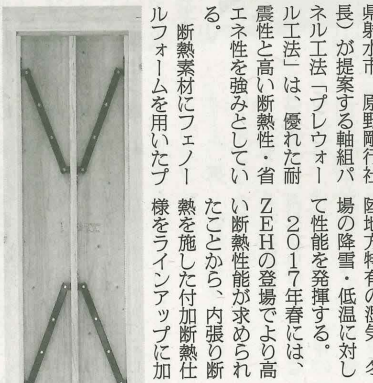 県射水市、原野剛行社
長）が提案する軸組パ
ネル工法「プレウォー
ル工法」は、優れた耐
震性と高い断熱性・省
エネ性を強みとしてい
る。
断熱素材にフェノー
ルフォームを用いたプ
陸地方特有の湿気、冬
場の降雪・低温に対し
て性能を発揮する。
２０１７年春には、
ＺＥＨの登場でより高
い断熱性能が求められ
たことから、内張り断
熱を施した付加断熱仕
様をラインアップに加